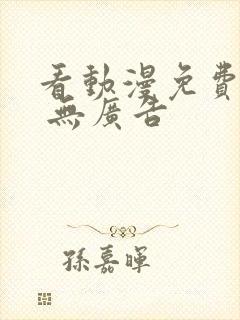 看動漫免費
無廣告
孫嘉暉